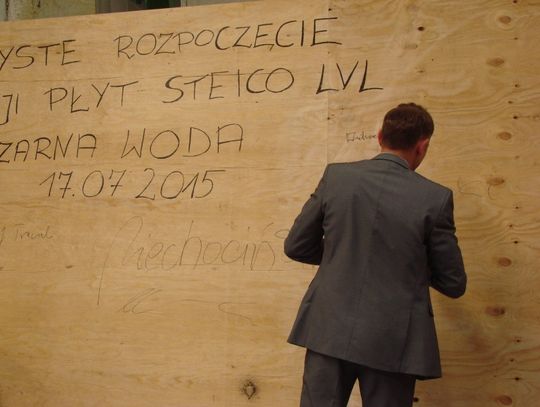 YSTE ROZPOCZĘCIE
JI PŁYT STEICO LVL
ZARNA WODA
17.07 2015
Piechociń